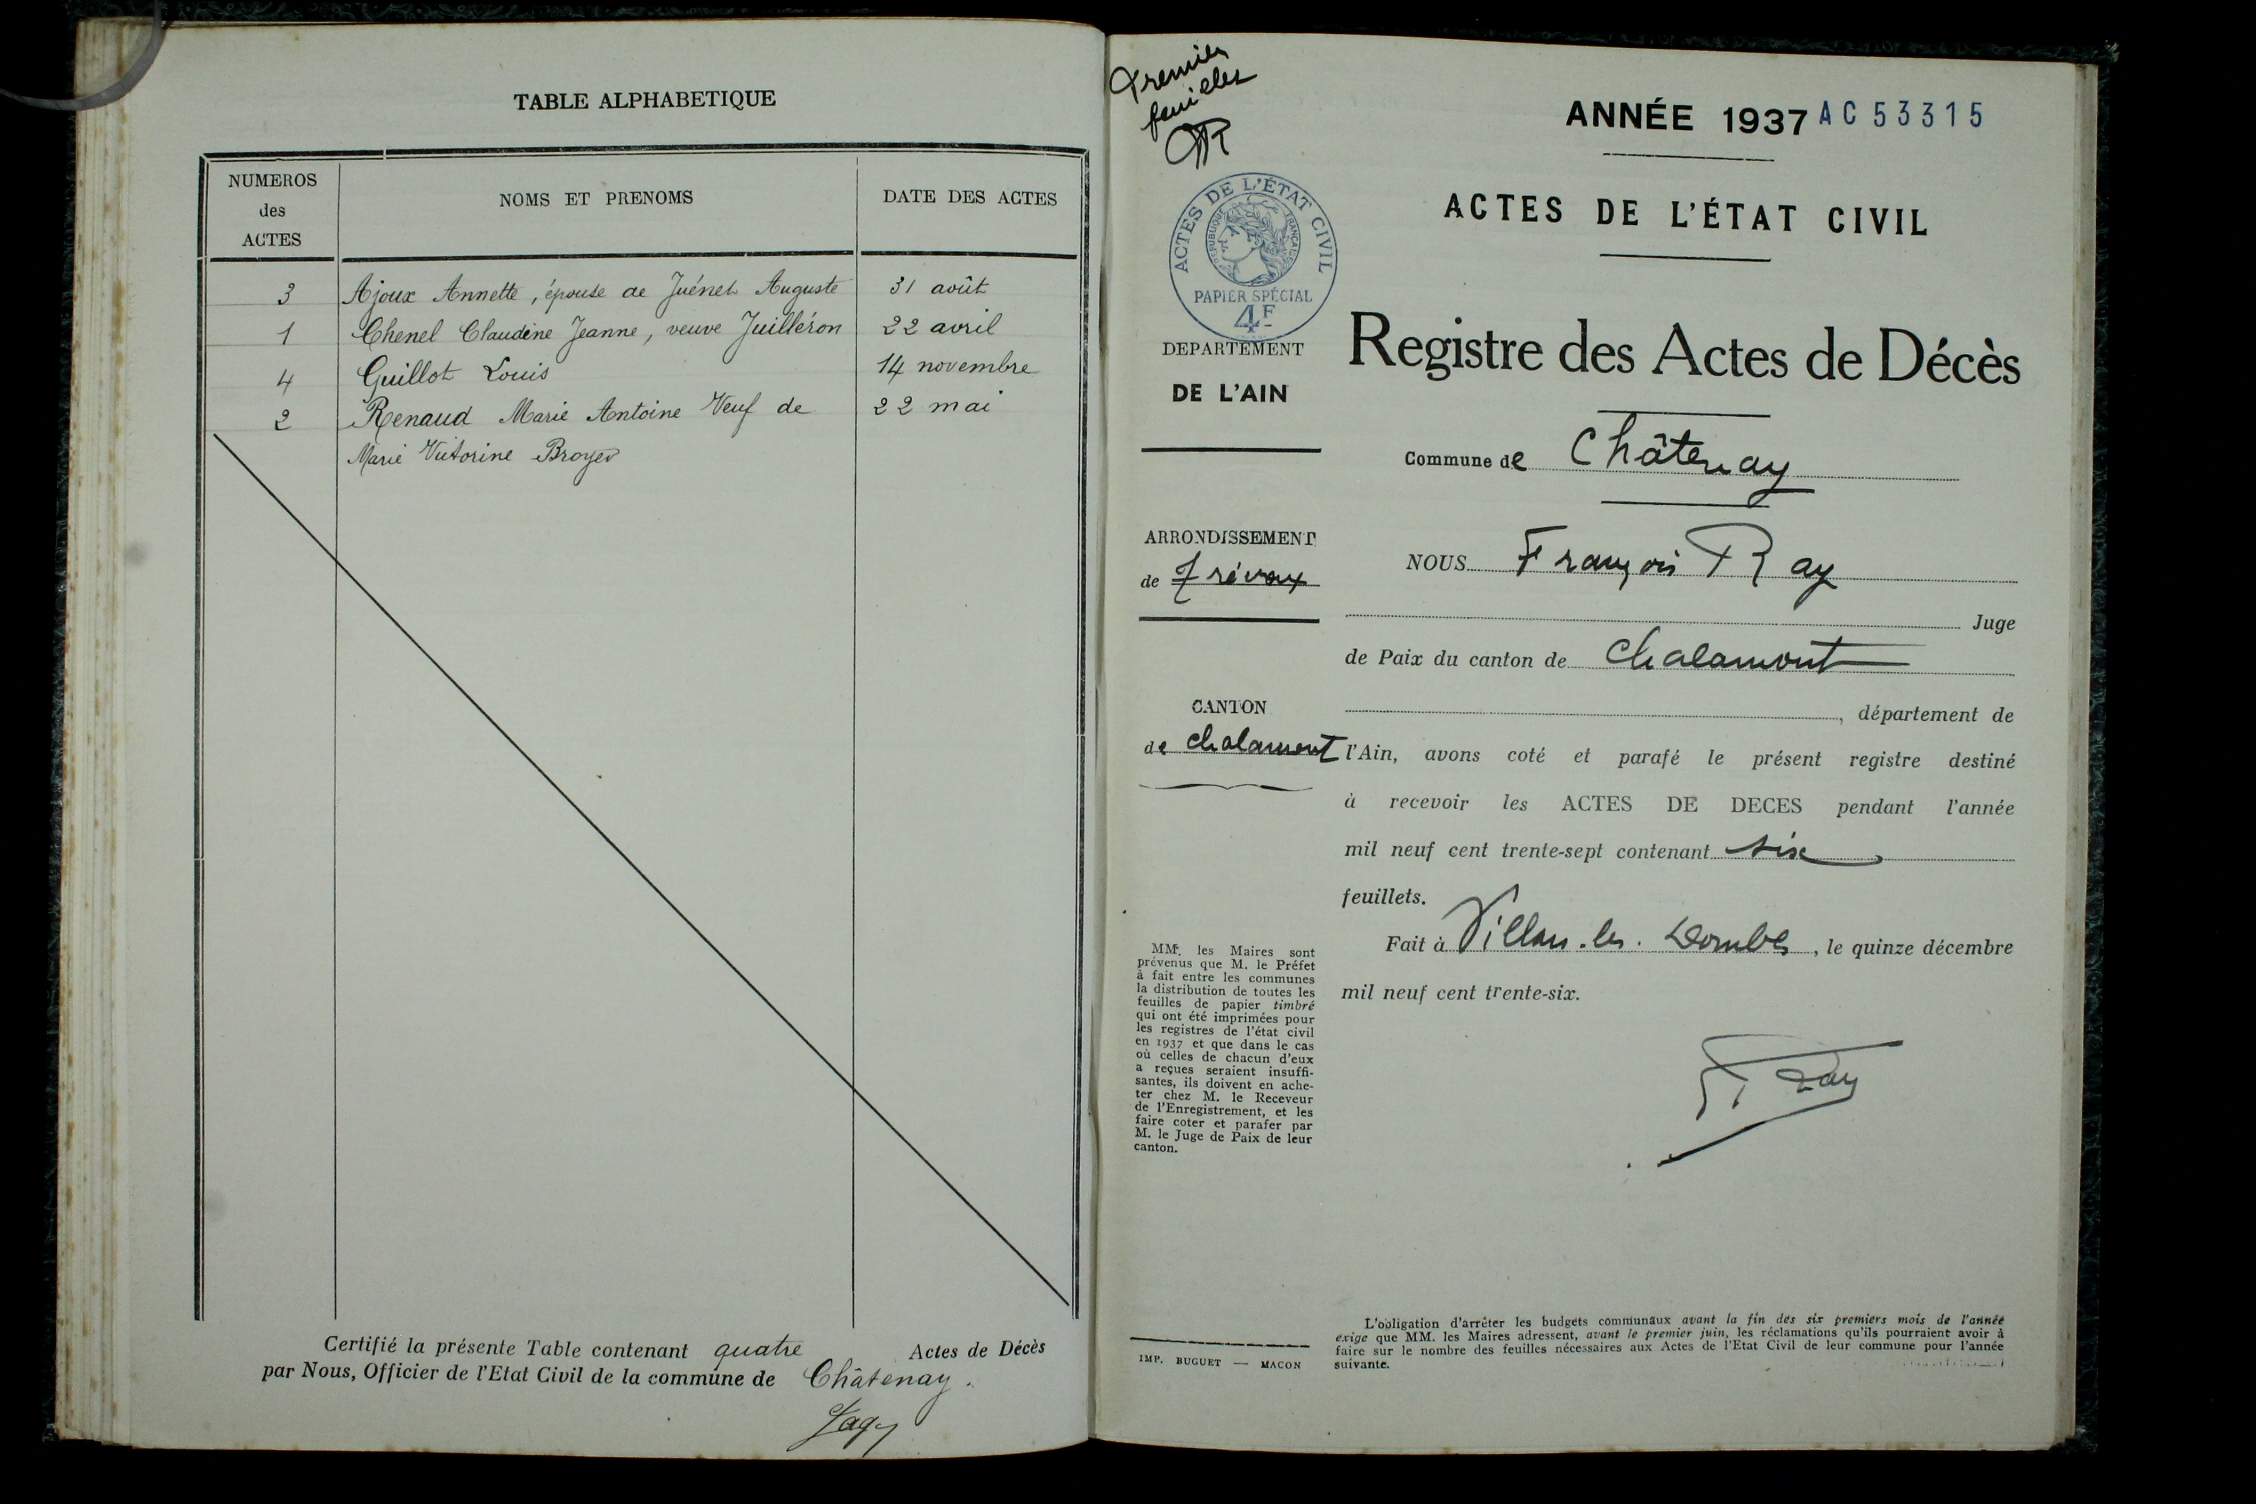 TABLE ALPHABETIQUE
NUMEROS
des
ACTES
NOMS ET PRENOMS
DATE DES ACTES
3 Ajoux Annette, épouse de Juénet Auguste 31 août
1 Chenel Claudine Jeanne, veuve Juilléron 22 avril
4 Guillot Louis 14 novembre
2 Renaud Marie Antoine Veuf de 22 mai
Marie Victorine Broyer
Certifié la présente Table contenant quatre Actes de Décès
par Nous, Officier de l'Etat Civil de la commune de Châtenay.
Premier
feuillet
ACTES DE L'ÉTAT CIVIL
RÉPUBLIQUE FRANÇAISE
PAPIER SPÉCIAL
4F
DEPARTEMENT
DE L'AIN
ARRONDISSEMENT
de Trévoux
CANTON
de Chalamont
MM. les Maires sont
prévenus que M. le Préfet
à fait entre les communes
la distribution de toutes les
feuilles de papier timbré
qui ont été imprimées pour
les registres de l'état civil
en 1937 et que dans le cas
où celles de chacun d'eux
a reçues seraient insuffi-
santes, ils doivent en ache-
ter chez M. le Receveur
de l'Enregistrement, et les
faire coter et parafer par
M. le Juge de Paix de leur
canton.
IMP. BUGUET — MACON
ANNÉE 1937 AC 53315
ACTES DE L'ÉTAT CIVIL
Registre des Actes de Décès
Commune de Châtenay
NOUS François Ray
Juge
de Paix du canton de Chalamont
, département de
l'Ain, avons coté et parafé le présent registre destiné
à recevoir les ACTES DE DECES pendant l'année
mil neuf cent trente-sept contenant six
feuillets.
Fait à Villars-les-Dombes, le quinze décembre
mil neuf cent trente-six.
F Ray
L'obligation d'arrêter les budgets communaux avant la fin des six premiers mois de l'année
exige que MM. les Maires adressent, avant le premier juin, les réclamations qu'ils pourraient avoir à
faire sur le nombre des feuilles nécessaires aux Actes de l'Etat Civil de leur commune pour l'année
suivante.